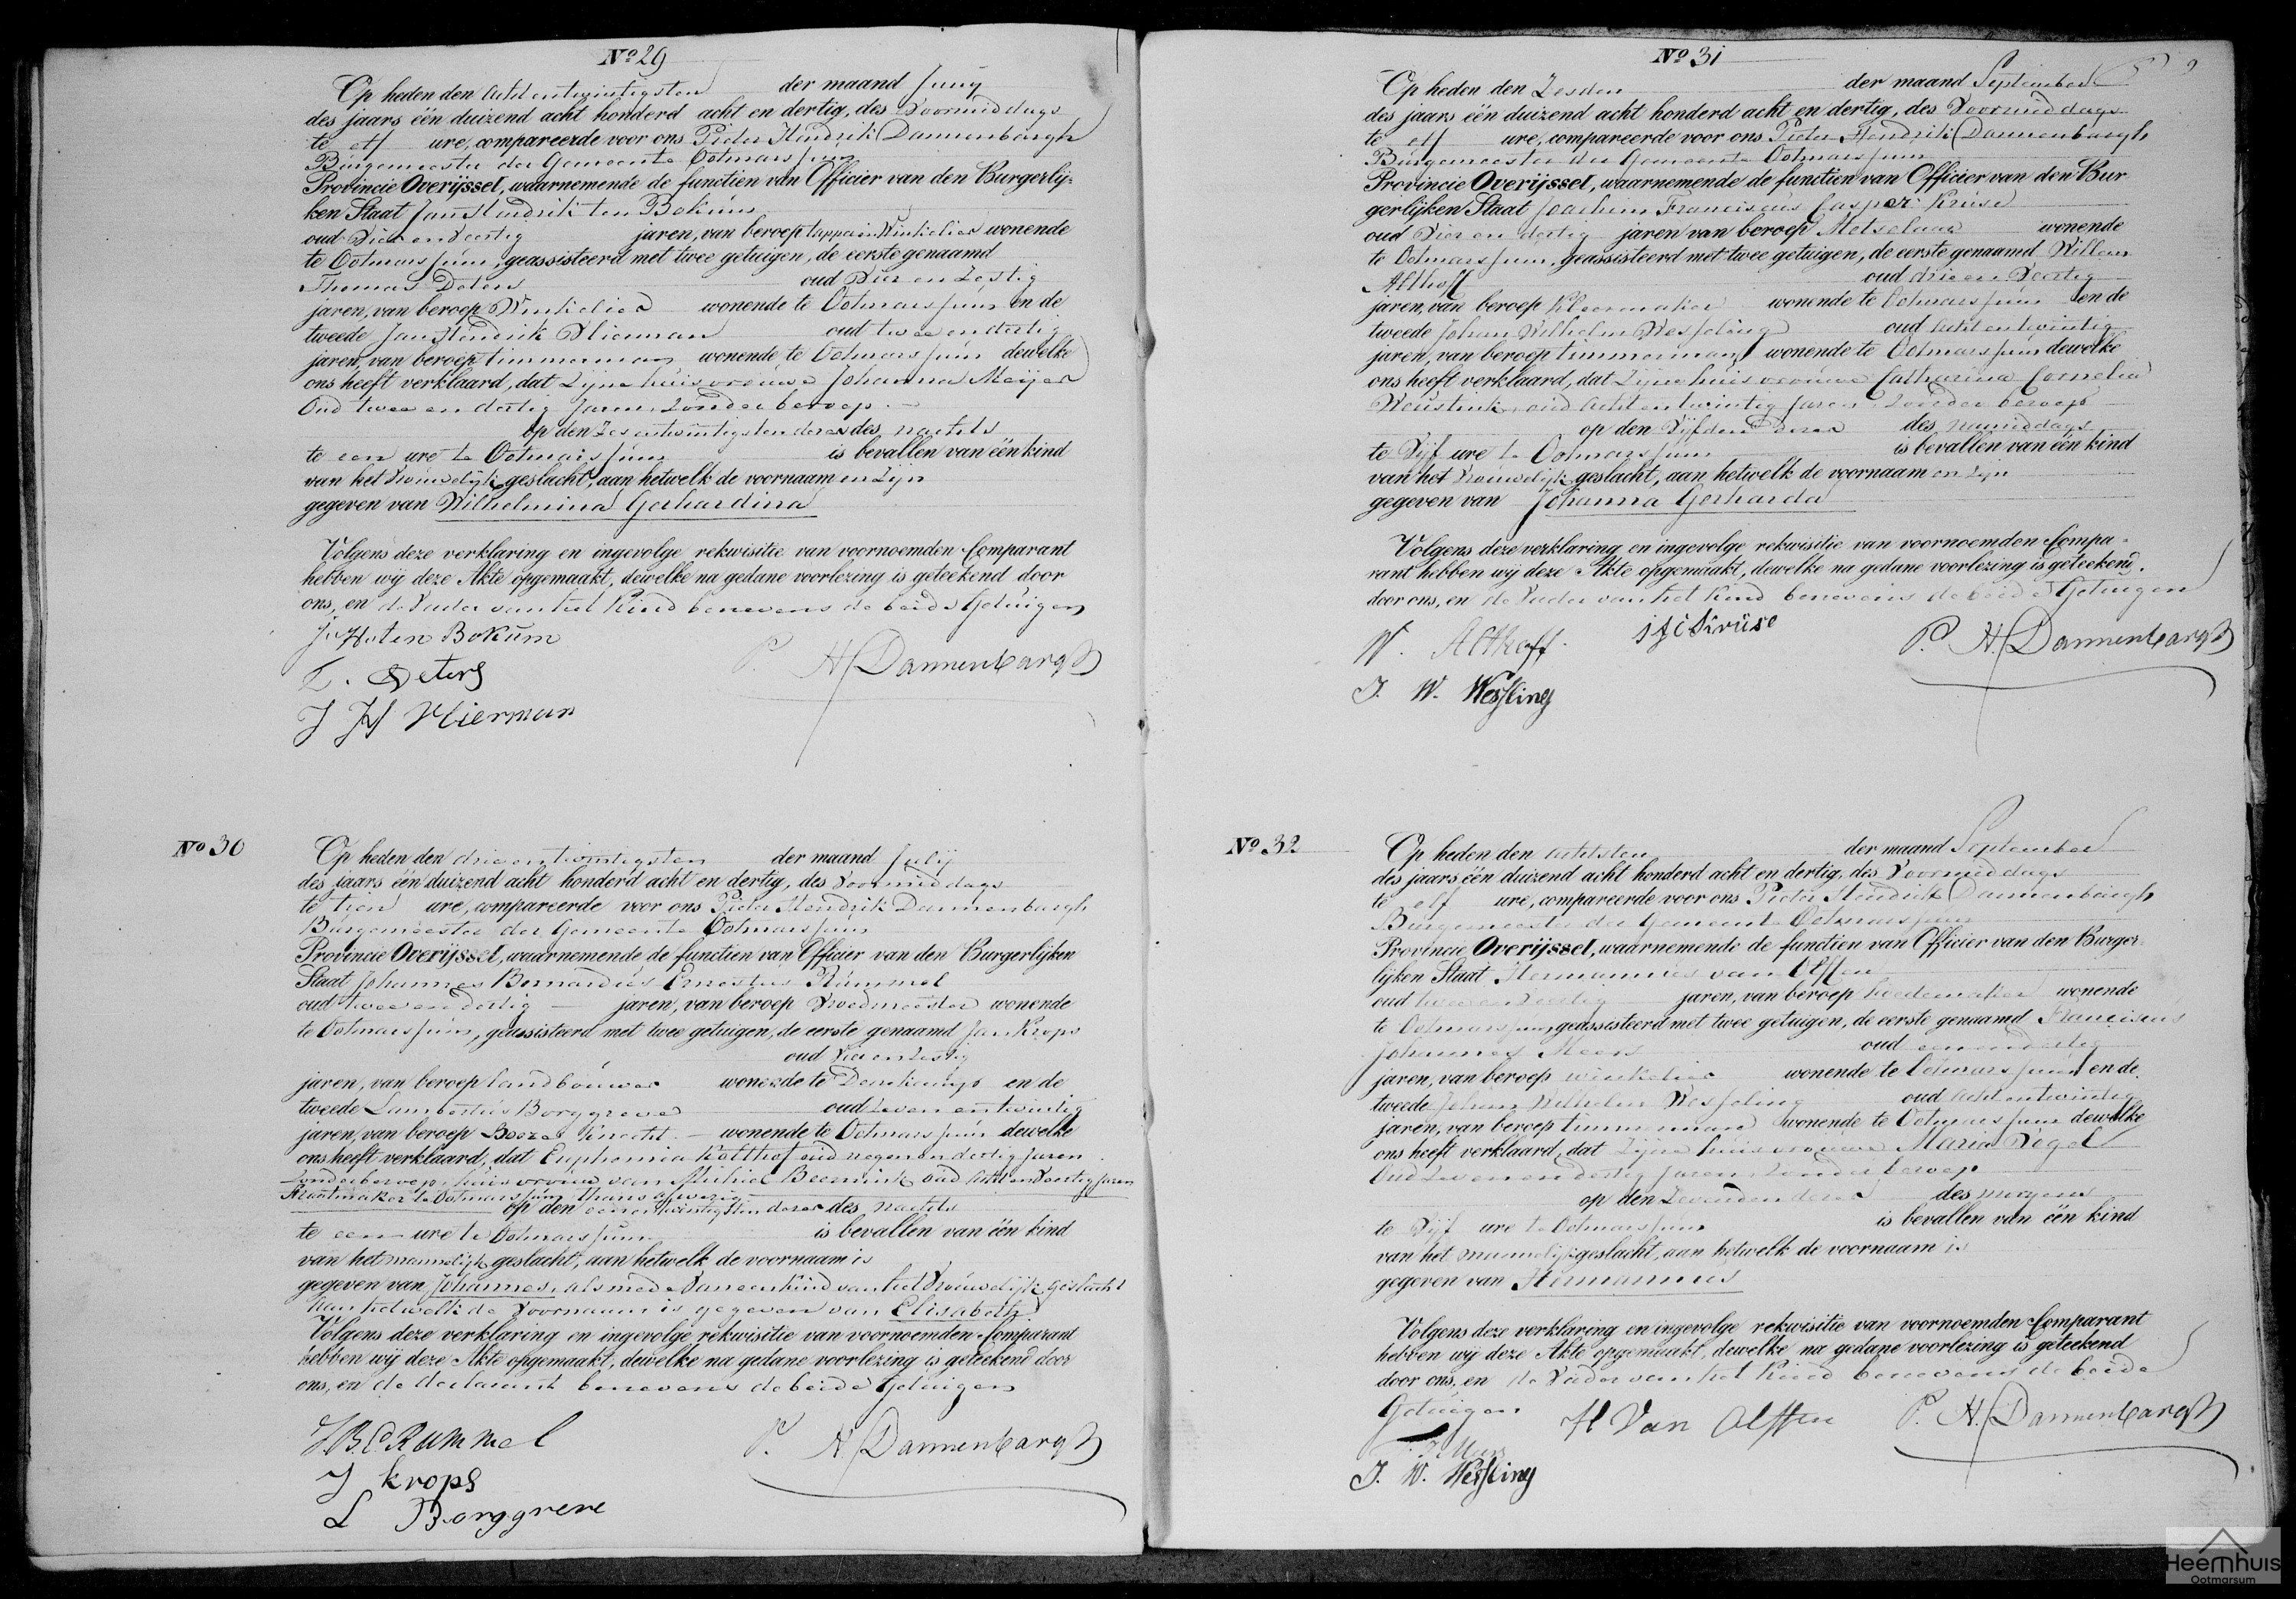 No 29
Op heden den achtentwintigsten der maand Junij
des jaars één duizend acht honderd acht en dertig, des Voormiddags
te elf ure, compareerde voor ons Pieter Hendrik Dannenbargh
Burgemeester der Gemeente Ootmarssum
Provincie Overijssel, waarnemende de functien van Officier van den Burgerlij-
ken Staat Jan Hendrik ten Bokum
oud Vier en Veertig jaren, van beroep tapper en Winkelier wonende
te Ootmarssum, geassisteerd met twee getuigen, de eerste genaamd
Thomas Deters oud Vier en Zestig
jaren, van beroep Winkelier wonende te Ootmarssum en de
tweede Jan Hendrik Vlierman oud twee en dertig
jaren, van beroep timmerman wonende te Ootmarssum dewelke
ons heeft verklaard, dat Zijne huisvrouwe Johanna Meijer
Oud twee en dertig Jaren, Zonder beroep
op den Zesentwintigsten dezer des nachts
te een ure te Ootmarssum is bevallen van één kind
van het Vrouwelijk geslacht, aan hetwelk de voornaam en Zijn
gegeven van Wilhelmina Gerhardina
Volgens deze verklaring en ingevolge rekwisitie van voornoemden Comparant
hebben wij deze Akte opgemaakt, dewelke na gedane voorlezing is geteekend door
ons, en de Vader van het Kind benevens de beide Getuigen
JH ten Bokum
T. Deters
P. H. Dannenbargh
J H Vlierman
No 30
Op heden den drieentwintigsten der maand Julij
des jaars één duizend acht honderd acht en dertig, des Voormiddags
te tien ure, compareerde voor ons Pieter Hendrik Dannenbargh
Burgemeester der Gemeente Ootmarssum
Provincie Overijssel, waarnemende de functien van Officier van den Burgerlijken
Staat Johannes Bernardus Ernestus Rummel
oud twee en dertig jaren, van beroep Vroedmeester wonende
te Ootmarssum, geassisteerd met twee getuigen, de eerste genaamd Jan Krops
oud Vier en Zestig
jaren, van beroep landbouwer wonende te Denekamp en de
tweede Lambertus Borggreve oud Zeven entwintig
jaren, van beroep Boeren knecht wonende te Ootmarssum dewelke
ons heeft verklaard, dat Euphemia Kolthof oud negen en dertig Jaren
Zonder beroep, huisvrouw van Michiel Beernink oud acht en Veertig Jaren
te Ootmarssum thans afwezig
op den eenentwintigsten dezer des nachts
te een ure te Ootmarssum is bevallen van één kind
van het mannelijk geslacht, aan hetwelk de voornaam is
gegeven van Johannes, alsmede Van een Kind van het Vrouwelijk geslacht
aan hetwelk de Voornaam is gegeven van Elisabeth
Volgens deze verklaring en ingevolge rekwisitie van voornoemden Comparant
hebben wij deze Akte opgemaakt, dewelke na gedane voorlezing is geteekend door
ons, en de declarant benevens de beide Getuigen
J.B.E Rummel
P. H. Dannenbargh
J krops
L Borggreve
No 31
Op heden den Zesden der maand September
des jaars één duizend acht honderd acht en dertig, des Voormiddags
te elf ure, compareerde voor ons Pieter Hendrik Dannenbargh
Burgemeester der Gemeente Ootmarssum
Provincie Overijssel, waarnemende de functien van Officier van den Bur-
gerlijken Staat Joachim Franciscus Casper Kruse
oud Vier en dertig jaren van beroep Metselaar wonende
te Ootmarssum, geassisteerd met twee getuigen, de eerste genaamd Willem
Althoff oud drie en Veertig
jaren, van beroep Kleermaker wonende te Ootmarssum en de
tweede Johan Wilhelm Wesseling oud acht entwintig
jaren, van beroep timmerman wonende te Ootmarssum dewelke
ons heeft verklaard, dat Zijne huisvrouwe Catharina Cornelia
Weustink, oud acht entwintig Jaren Zonder beroep
op den Vijfden dezer des namiddags
te Vijf ure te Ootmarssum is bevallen van één kind
van het Vrouwelijk geslacht, aan hetwelk de voornaam en Zijn
gegeven van Johanna Gerharda
Volgens deze verklaring en ingevolge rekwisitie van voornoemden Compa-
rant hebben wij deze Akte opgemaakt, dewelke na gedane voorlezing is geteekend
door ons, en de Vader van het Kind benevens de beide Getuigen
W. Althoff. J F C Kruse
P. H. Dannenbargh
J. W. Wessling
No 32
Op heden den achtsten der maand September
des jaars één duizend acht honderd acht en dertig, des Voormiddags
te elf ure, compareerde voor ons Pieter Hendrik Dannenbargh
Burgemeester der Gemeente Ootmarssum
Provincie Overijssel, waarnemende de functien van Officier van den Burger-
lijken Staat Hermannus van Olffen
oud twee en Veertig jaren, van beroep hoedemaker wonende
te Ootmarssum, geassisteerd met twee getuigen, de eerste genaamd Franciscus
Johannes Meers oud eenendertig
jaren, van beroep winkelier wonende te Ootmarssum en de
tweede Johan Wilhelm Wesseling oud acht entwintig
jaren, van beroep timmerman wonende te Ootmarssum dewelke
ons heeft verklaard, dat Zijne huisvrouwe Maria Vogel
Oud Zeven en dertig Jaren, Zonder beroep
op den Zevenden dezer des morgens
te Vijf ure te Ootmarssum is bevallen van één kind
van het mannelijk geslacht, aan hetwelk de voornaam is
gegeven van Hermannus
Volgens deze verklaring en ingevolge rekwisitie van voornoemden Comparant
hebben wij deze Akte opgemaakt, dewelke na gedane voorlezing is geteekend
door ons, en de Vader van het Kind benevens de beide
Getuigen H Van Olffen P. H. Dannenbargh
J. W. Wessling
Heemhuis
Ootmarsum